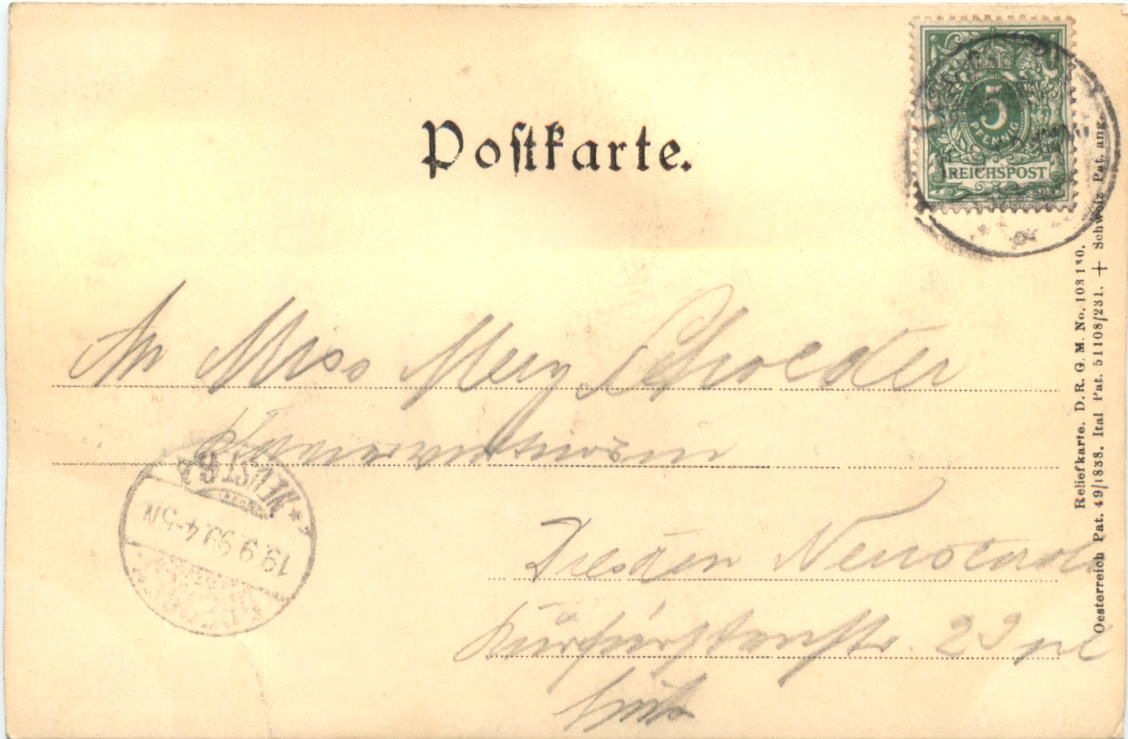 Postkarte.
5
PFENNIG
REICHSPOST
An Miss Mery
Dresden Neustadt
Kurfürstenstr. 22
NEUST. 6.
19.9.99.4-5N
DRESDEN
Reliefkarte. D. R. G. M. No. 103130.
Oesterreich Pat. 49/1838. Ital Pat. 51108/231. + Schweiz Pat. ang.